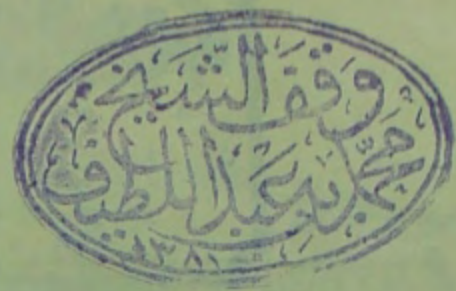 وَقفُ الشَّيخ
مُحَمَّد بن عَبْد اللطيف
١٣٨١